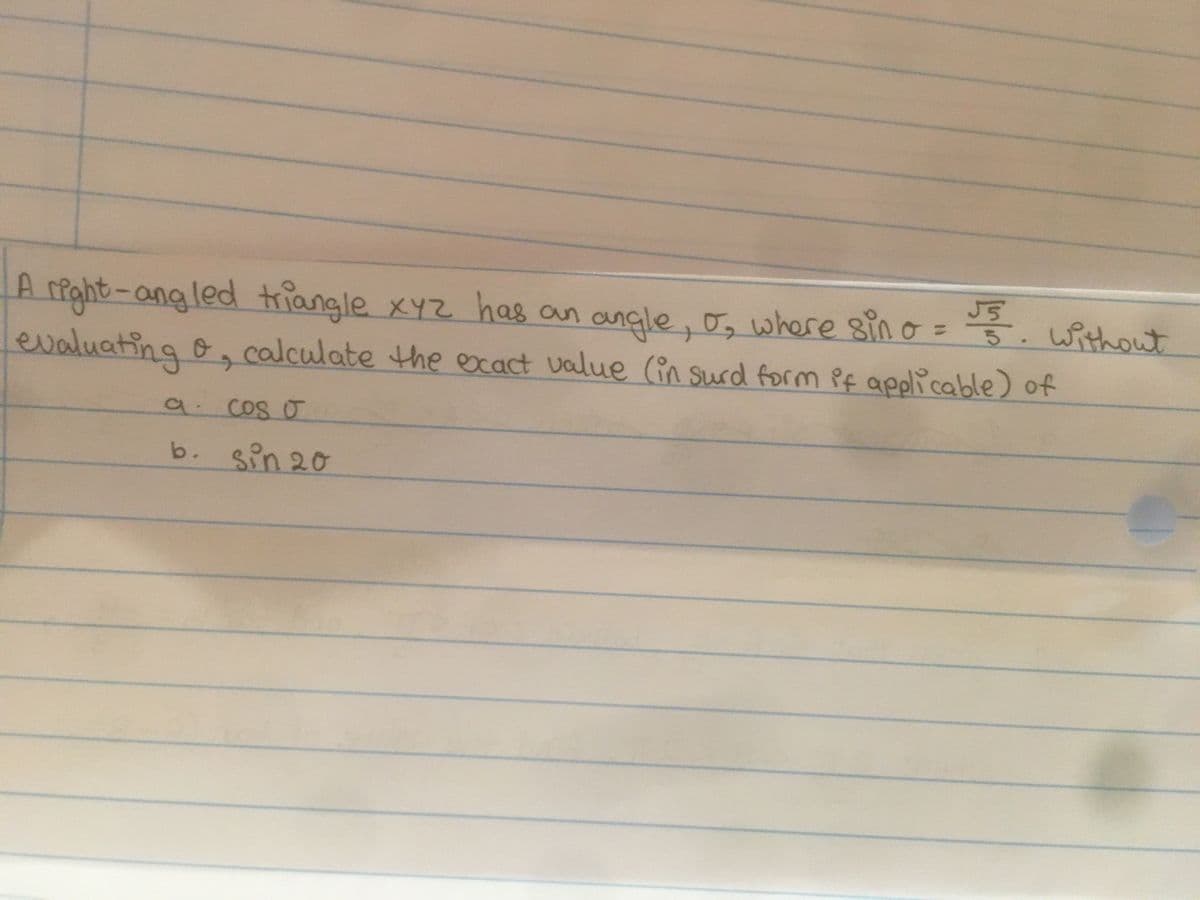 A right-angled triangle XYZ has an angle, σ, where sin σ = √5/5. Without
evaluating σ, calculate the exact value (in surd form if applicable) of
a. cos σ
b. sin 2σ